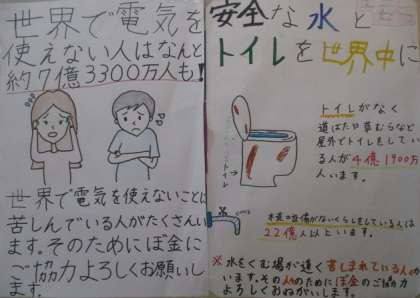 世界で電気を
使えない人はなんと
約7億3300万人も!
世界で電気を使えないことに
苦しんでいる人がたくさんい
ます。そのためにぼ金に
ご協力よろしくお願いしし
ます。
安全な水と
トイレを世界中に
トイレ
トイレがなく
道ばたや草むらなど
屋外でトイレをしてい
る人が4億1900万
人います。
水道の設備がないくらしをしている人は
22億人以上います。
※水をくむ場が遠く苦しまれている人が
います。その人のためにぼ金のご協力
よろしくおねがいします。